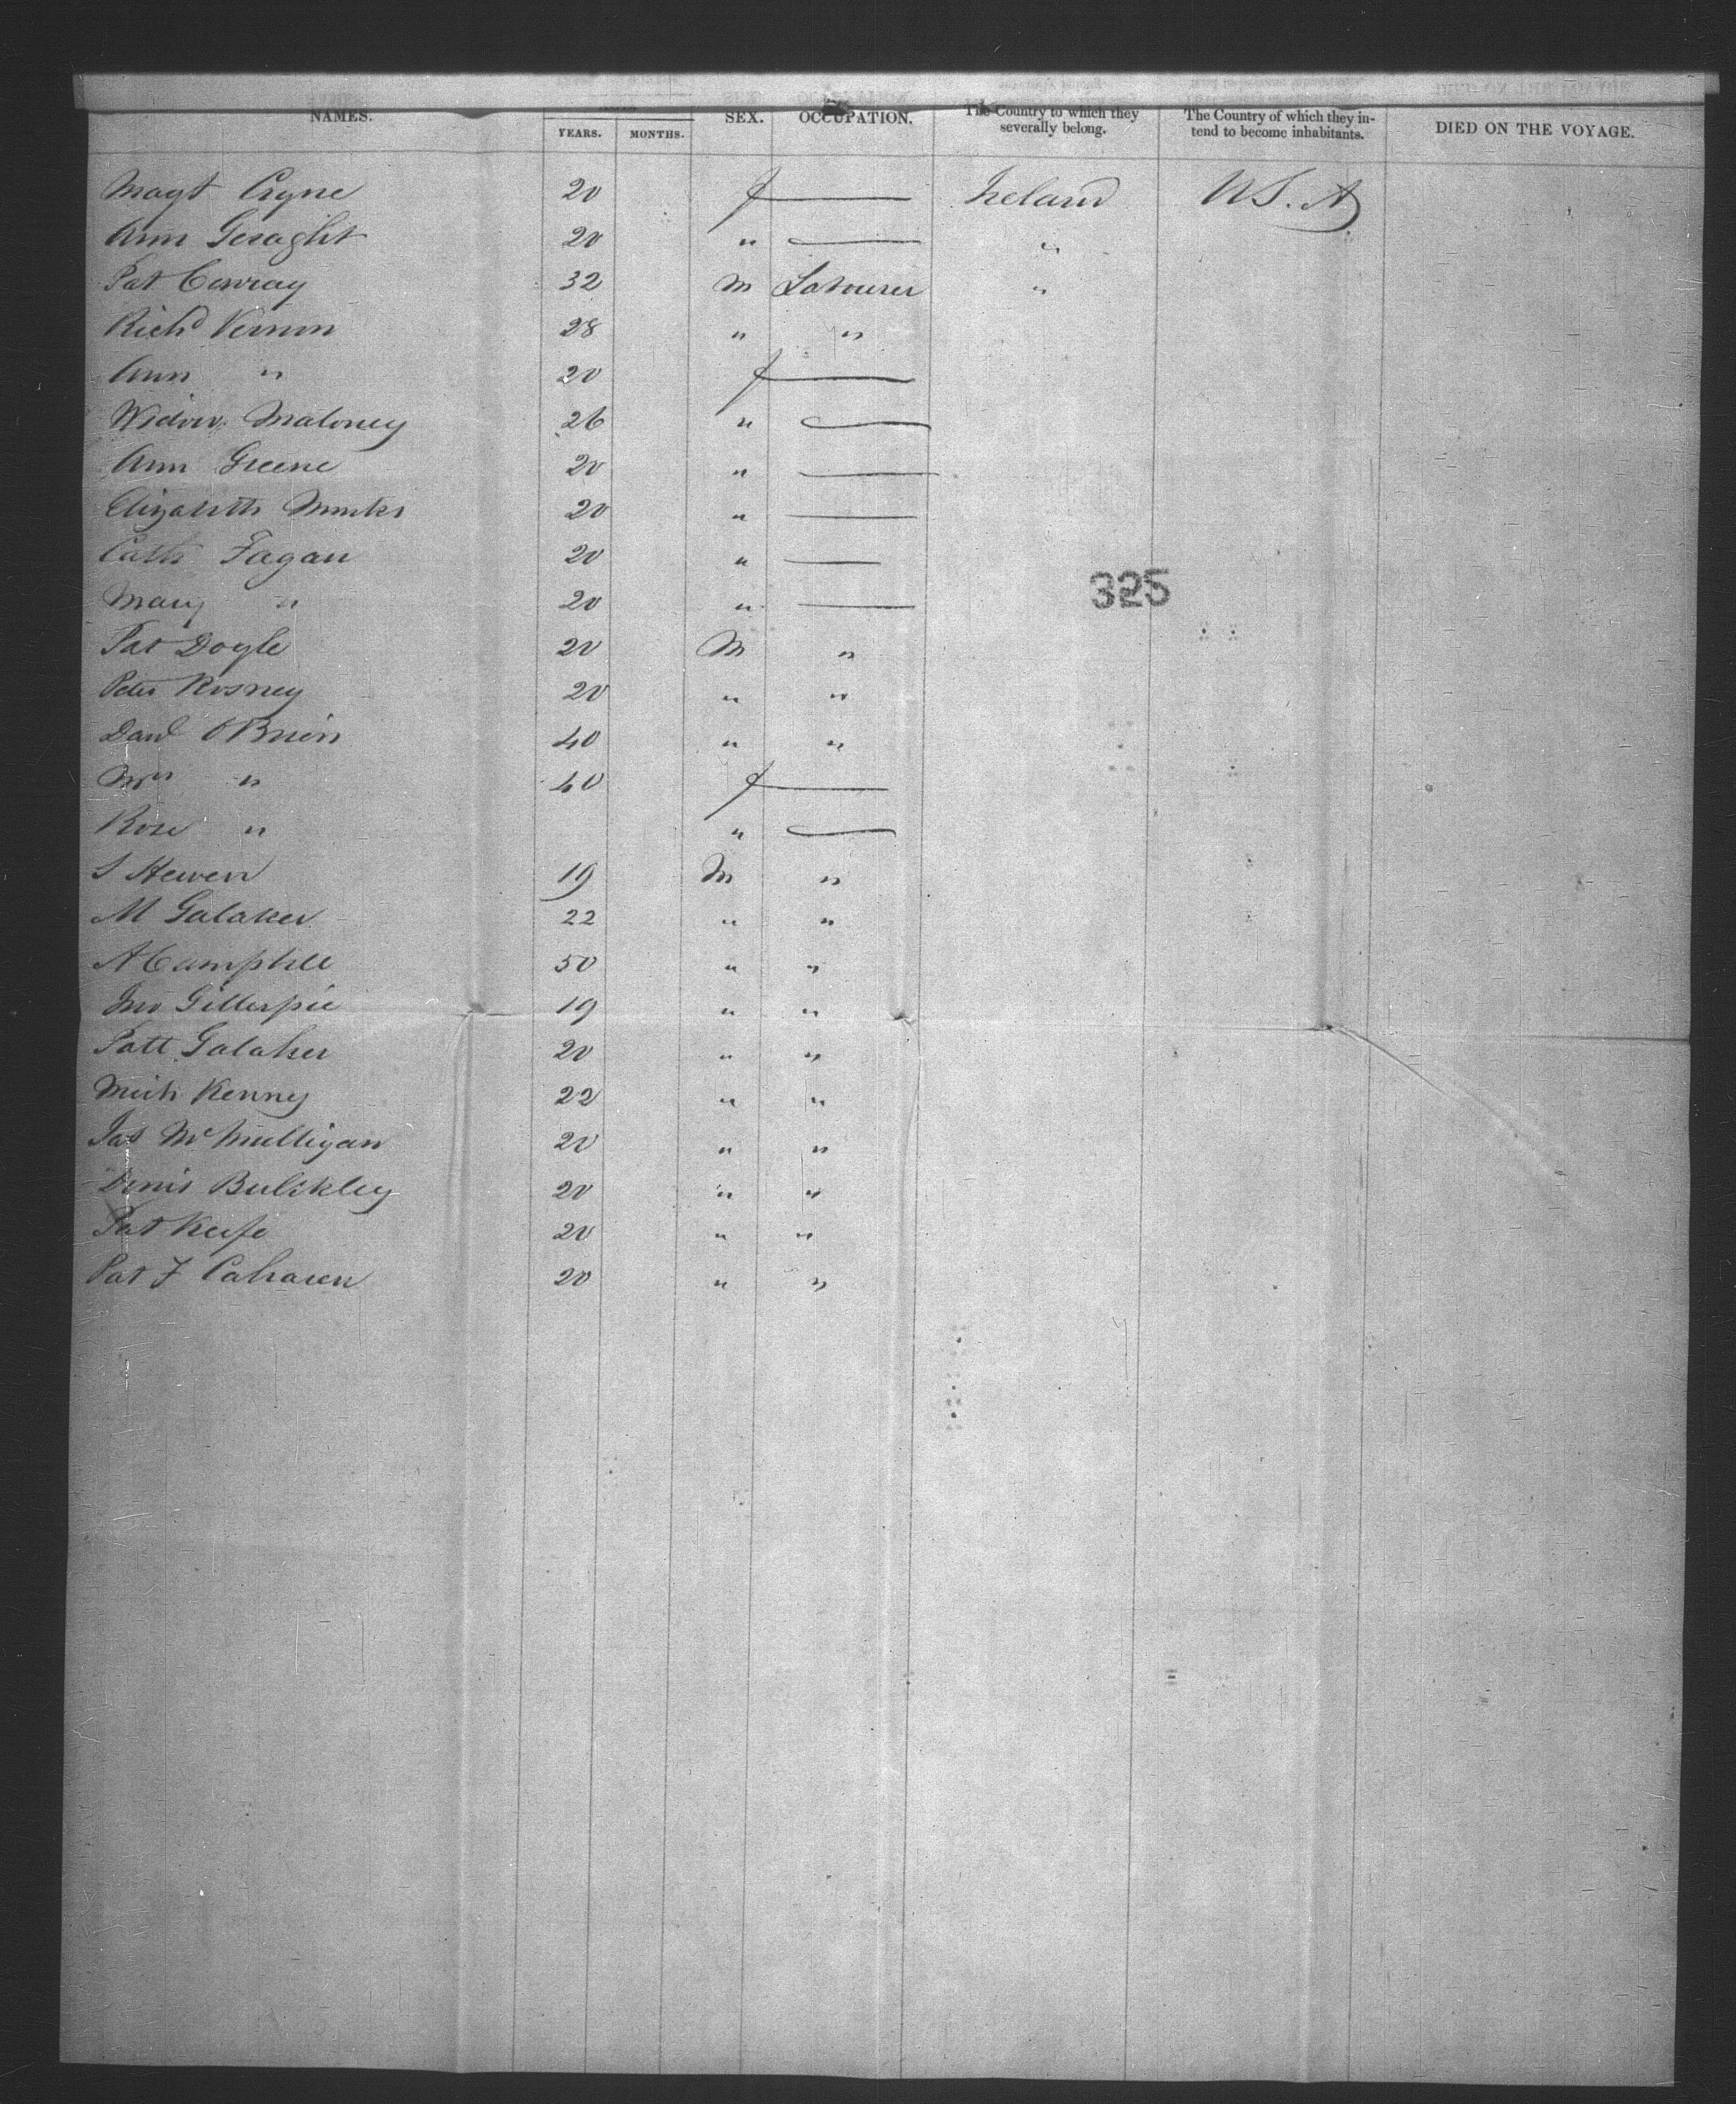 NAMES. YEARS. MONTHS. SEX. OCCUPATION. The Country to which they severally belong. The Country of which they intend to become inhabitants. DIED ON THE VOYAGE.
Magt Cryne 20 f — Ireland U.S.A
Ann Geraght 20 " — "
Pat Conray 32 M Labourer "
Richd Vernon 28 " "
Ann " 20 f —
Widow Maloney 26 " —
Ann Greene 20 " —
Elizabeth Monks 20 " —
Cath Fagan 20 " —
325
Mary " 20 " —
Pat Doyle 20 M "
Peter Rosney 20 " "
Danl O'Brien 40 " "
Mrs " 40 f —
Rose " " —
S Hewen 19 M "
M Galaker 22 " "
A Campbell 50 " "
Jno Gillespie 19 " "
Patt Galaher 20 " "
Mich Kenney 22 " "
Jas McMulligan 20 " "
Denis Bulikley 20 " "
Pat Keefe 20 " "
Pat F Calraren 20 " "